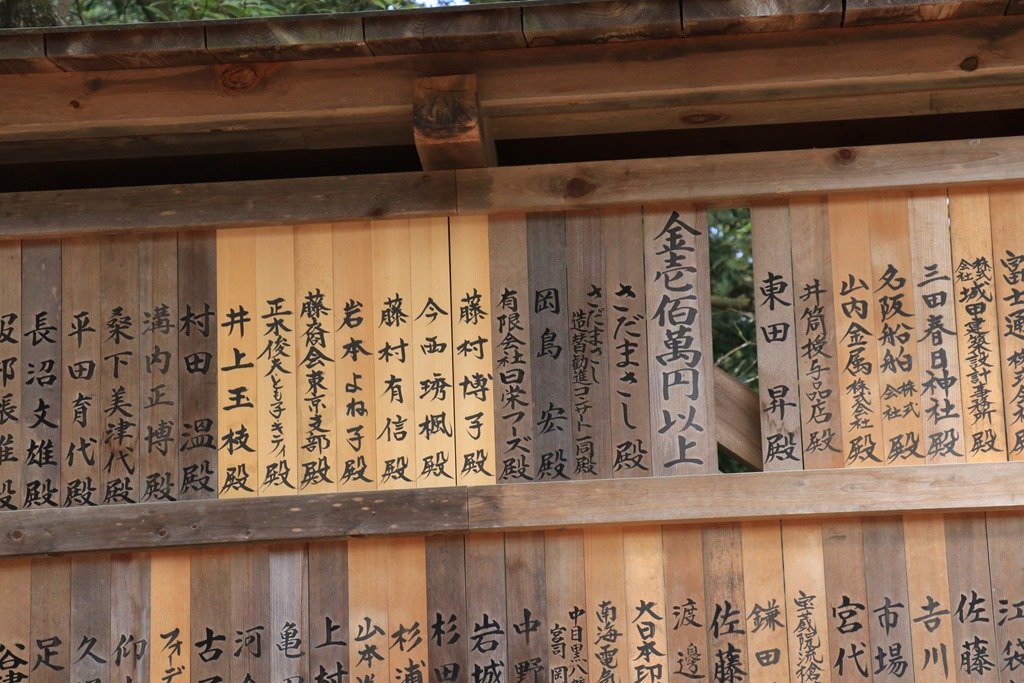 富士通株式会社
株式会社城田建築設計事務所殿
三田春日神社殿
名阪船舶株式会社殿
山内金属株式会社殿
井筒授与品店殿
東田昇殿
金壱佰萬円以上
さだまさし殿
さだまさし造替勧進コンサート一同殿
岡島宏殿
有限会社日栄フーズ殿
藤村博子殿
今西琇楓殿
藤村有信殿
岩本よね子殿
藤裔会東京支部殿
正木俊夫とも子キティ殿
井上玉枝殿
村田温殿
溝内正博殿
桑下美津代殿
平田育代殿
長沼文雄殿
江袋
佐藤
吉川
市場
宮代
宝蔵院流槍
鎌田
佐藤
渡邊
大日本印
南海電気
中目黒八幡
宮司岡
中野
岩城
杉田
杉浦
山本
上村
亀
河
古
フォデ
仰
久
足
谷